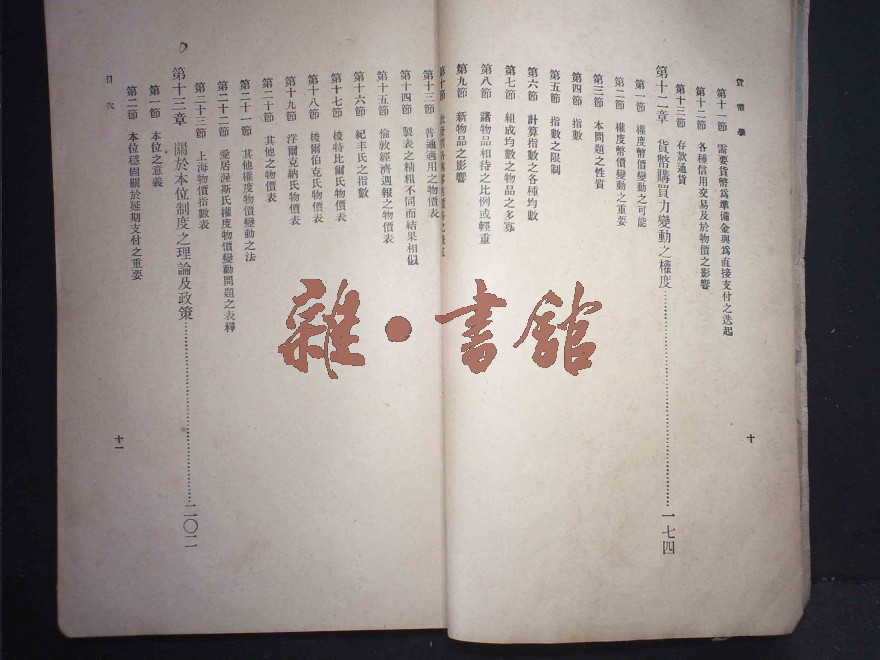 貨幣學
第十一節 需要貨幣爲準備金與爲直接支付之迭起
第十二節 各種信用交易及於物價之影響
第十三節 存款通貨
第十二章 貨幣購買力變動之權度……一七四
第一節 權度幣價變動之可能
第二節 權度幣價變動之重要
第三節 本問題之性質
第四節 指數
第五節 指數之限制
第六節 計算指數之各種均數
第七節 組成均數之物品之多寡
第八節 諸物品相待之比例或輕重
第九節 新物品之影響
十
第十三節 普通適用之物價表
第十四節 製表之精粗不同而結果相似
第十五節 倫敦經濟週報之物價表
第十六節 紀丰氏之指數
第十七節 梭特比爾氏物價表
第十八節 梭爾伯克氏物價表
第十九節 浮爾克納氏物價表
第二十節 其他之物價表
第二十一節 其他權度物價變動之法
第二十二節 愛居渥斯氏權度物價變動問題之表釋
第二十三節 上海物價指數表
第十三章 關於本位制度之理論及政策……二〇二
第一節 本位之意義
第二節 本位穩固關於延期支付之重要
目次
十一
雜·書館